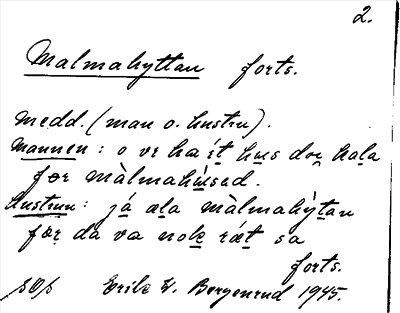 2.
Malmahyttan forts.
medd. (man o. hustru).
Mannen: o vr ha ít hus dou kala
fœr màlmahúsed.
Hustrun: já ala màlmahỳtan
fœr da va nok rát sa
forts.
SOS Erik W. Bergenrud 1945.